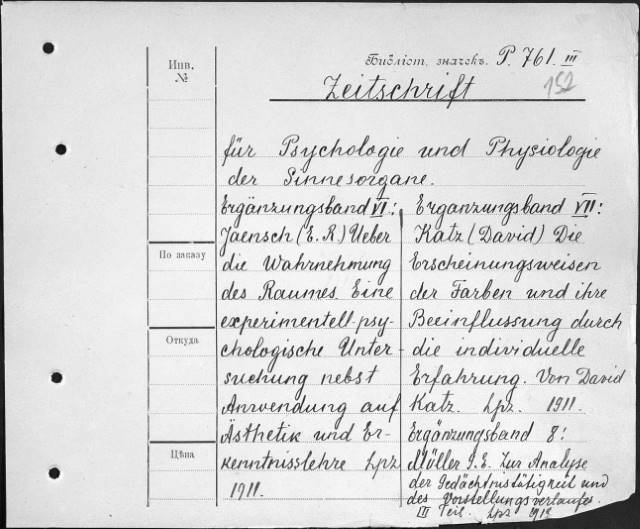 Инв.
№
Библіот. значекъ. P. 761. III
152
Zeitschrift
für Psychologie und Physiologie
der Sinnesorgane.
Ergänzungsband VI:
Jaensch (E. R.) Ueber
die Wahrnehmung
des Raumes. Eine
experimentell-psy-
chologische Unter-
suchung nebst
Anwendung auf
Ästhetik und Er-
kenntnisslehre Lpz
1911.
Erganzungsband VII:
Katz (David) Die
Erscheinungsweisen
der Farben und ihre
Beeinflussung durch
die individuelle
Erfahrung. Von David
Katz. Lpz. 1911.
Ergänzungsband 8:
Müller G. E. Zur Analyse
der Gedächtnistätigkeit und
des Vorstellungsverlaufes.
III Teil. Lpz 1913
По заказу
Откуда
Цѣна